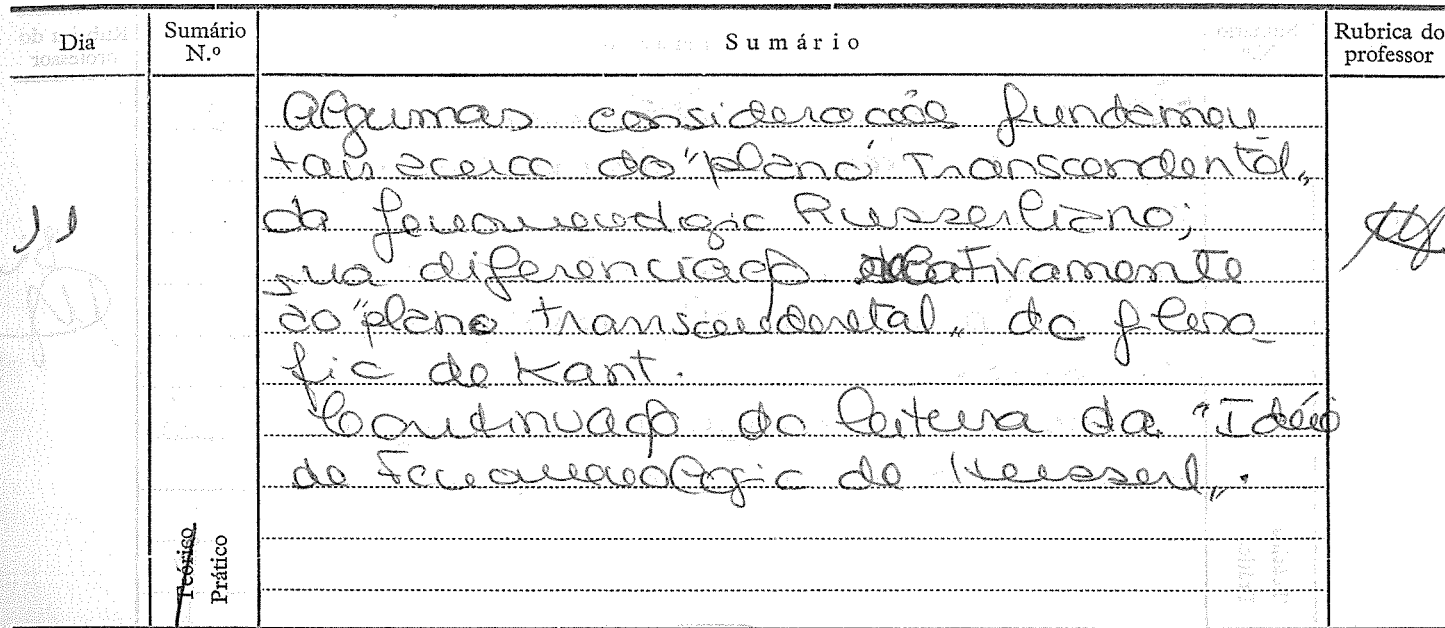 Dia
Sumário
N.º
Sumário
Rubrica do
professor
Algumas considerações fundamen
tais acerca do "plano transcendental"
da fenomenologia Husserliana;
11
sua diferenciação relativamente
ao "plano transcendental" da filoso
fia de Kant.
Continuação da leitura da "Idéia
da Fenomenologia de Husserl".
Teórico
Prático